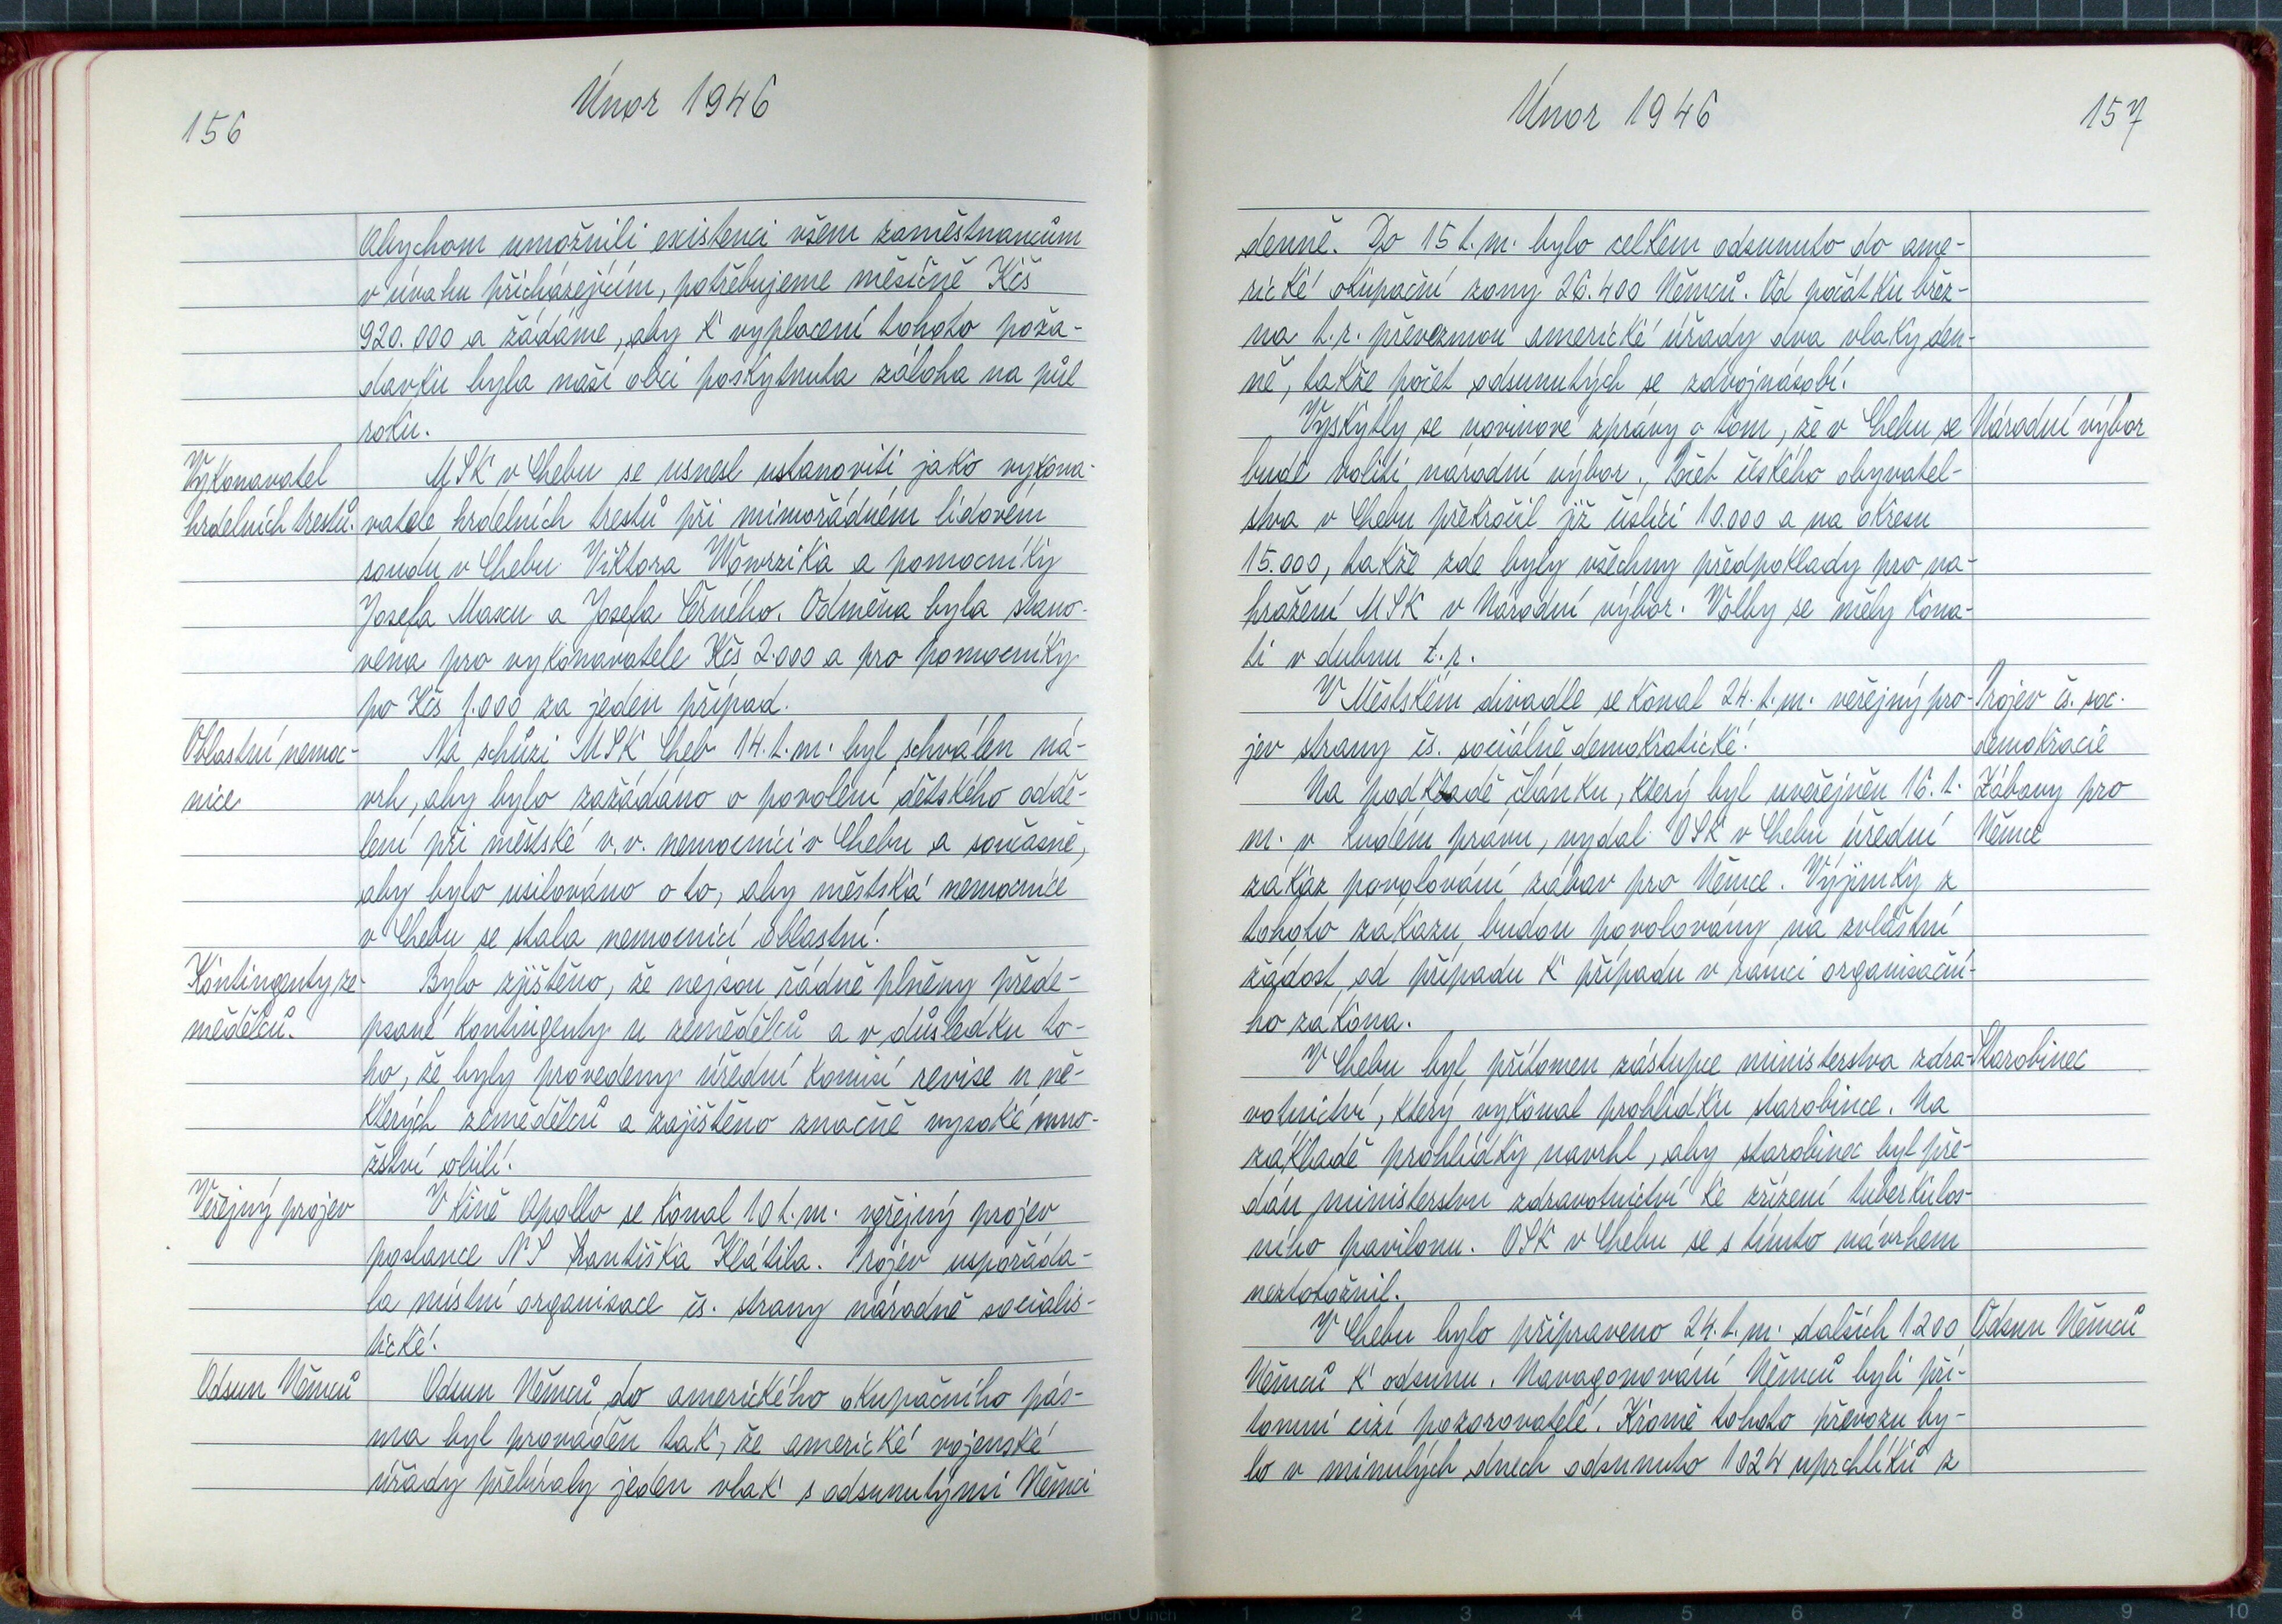 156
Únor 1946
Abychom umožnili existenci všem zaměstnancům
v úvahu přicházejícím, potřebujeme měsíčně Kčs
920.000 a žádáme, aby k vyplacení tohoto poža-
davku byla naší obci poskytnuta záloha na půl
roku.
Vykonavatel
hrdelních trestů.
MSK v Chebu se usnesl ustanoviti jako vykona-
vatele hrdelních trestů při mimořádném lidovém
soudu v Chebu Viktora Wawrzika a pomocníky
Josefa Maxu a Josefa Černého. Odměna byla stano-
vena pro vykonavatele Kčs 2.000 a pro pomocníky
po Kčs 1.000 za jeden případ.
Oblastní nemoc-
nice
Na schůzi MSK Cheb 14.t.m. byl schválen ná-
vrh, aby bylo zažádáno o povolení dětského oddě-
lení při městské v.v. nemocnici v Chebu a současně,
aby bylo usilováno o to, aby městská nemocnice
v Chebu se stala nemocnicí oblastní.
Kontingenty ze-
mědělců.
Bylo zjištěno, že nejsou řádně plněny přede-
psané kontingenty u zemědělců a v důsledku to-
ho, že byly provedeny úřední komisí revise u ně-
kterých zemědělců a zajištěno značně vysoké mno-
žství obilí.
Veřejný projev
V kině Apollo se konal 10 t.m. veřejný projev
poslance NS Františka Klátila. Projev uspořáda-
la místní organisace čs. strany národně socialis-
tické.
Odsun Němců
Odsun Němců do amerického okupačního pás-
ma byl prováděn tak, že americké vojenské
úřady přebíraly jeden vlak s odsunutými Němci
Únor 1946
157
denně. Do 15 t.m. bylo celkem odsunuto do ame-
rické okupační zony 26.400 Němců. Od počátku břez-
na t.r. převezmou americké úřady dva vlaky den-
ně, takže počet odsunutých se zdvojnásobí.
Vyskytly se novinové zprávy o tom, že v Chebu se
bude voliti národní výbor. Počet českého obyvatel-
stva v Chebu překročil již číslici 10.000 a na okresu
15.000, takže zde byly všechny předpoklady pro na-
hražení MSK v Národní výbor. Volby se měly kona-
ti v dubnu t.r.
Národní výbor
V Městském divadle se konal 24.t.m. veřejný pro-
jev strany čs. sociálně demokratické.
Projev čs. soc.
demokracie
Na podkladě článku, který byl uveřejněn 16.t.
m. v Rudém právu, vydal OSK v Chebu úřední
zákaz povolování zábav pro Němce. Výjimky z
tohoto zákazu budou povolovány na zvláštní
žádost od případu k případu v rámci organisační-
ho zákona.
Zábavy pro
Němce
V Chebu byl přítomen zástupce ministerstva zdra-
votnictví, který vykonal prohlídku starobince. Na
základě prohlídky navrhl, aby starobinec byl pře-
dán ministerstvu zdravotnictví ke zřízení tuberkulos-
ního pavilonu. OSK v Chebu se s tímto návrhem
neztotožnil.
Starobinec
V Chebu bylo připraveno 24.t.m. dalších 1200
Němců k odsunu. Navagonování Němců byli pří-
tomni cizí pozorovatelé. Kromě tohoto převozu by-
lo v minulých dnech odsunuto 1024 uprchlíků z
Odsun Němců